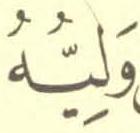 وَلِيُّهُ